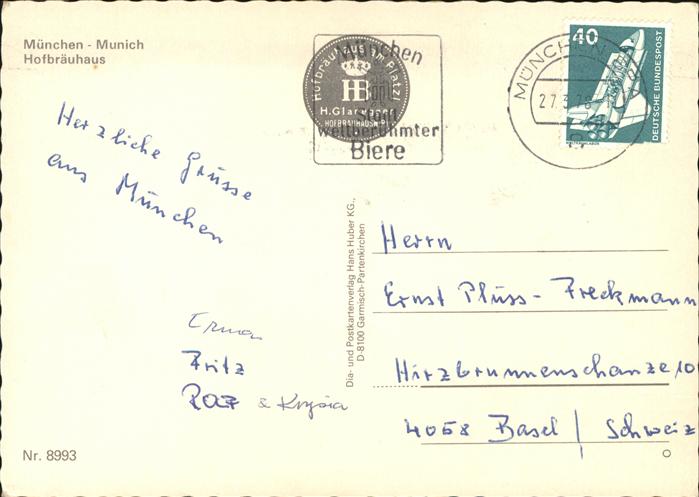 München - Munich
Hofbräuhaus
Herzliche Grüsse
aus München
Erna
Fritz
Rolf & Krysia
Nr. 8993
Hofbräuhaus am Platzl
HB
H. Glas
HOFBRÄUHAUS
München
weltberühmter
Biere
MÜNCHEN
27.3.76
40
DEUTSCHE BUNDESPOST
WELTRAUMLABOR
Dia- und Postkartenverlag Hans Huber KG.,
D-8100 Garmisch-Partenkirchen
Herrn
Ernst Plüss - Freckmann
Hirzbrunnenschanze 10
4058 Basel / Schweiz